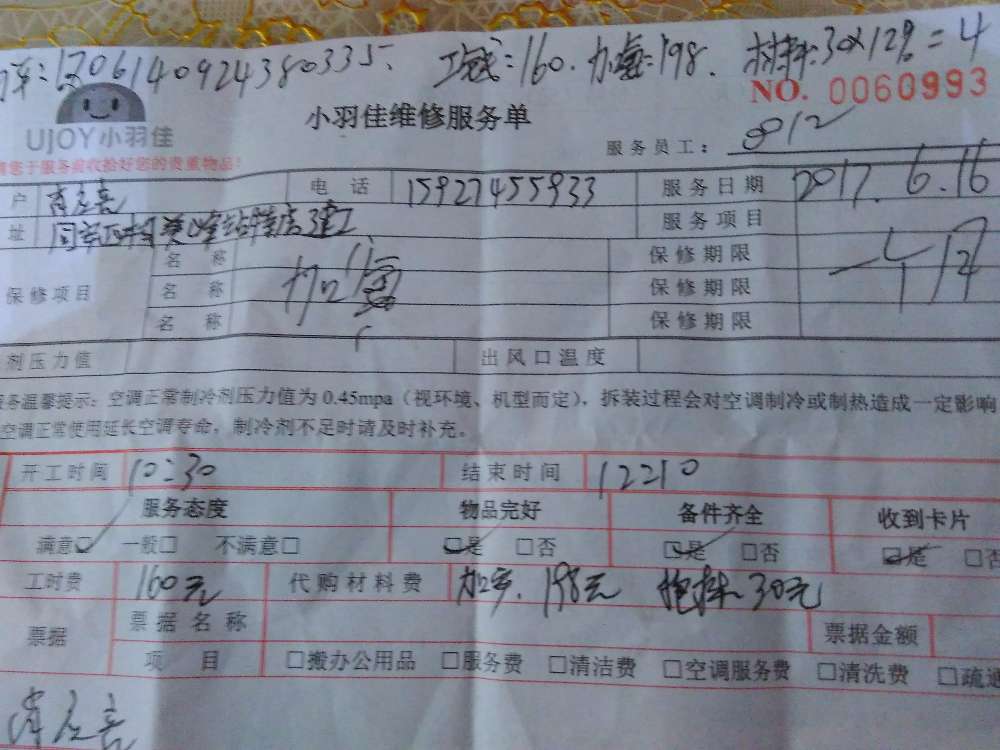 1706140924380335. 工时:160. 加氟:198. 材料:30×12% = 4
NO. 0060993
UJOY小羽佳
小羽佳维修服务单
服务员工: 0912
您于服务前收拾好您的贵重物品!
户 电话 15927455933 服务日期 2017.6.16
址 服务项目
名称 保修期限
保修项目 名称 加氟 保修期限
名称 保修期限
剂压力值 出风口温度
务温馨提示:空调正常制冷剂压力值为 0.45mpa(视环境、机型而定),拆装过程会对空调制冷或制热造成一定影响
空调正常使用延长空调寿命,制冷剂不足时请及时补充。
开工时间 10:30 结束时间 12:10
服务态度 物品完好 备件齐全 收到卡片
满意☑ 一般□ 不满意□ ☑是 □否 ☑是 □否 ☑是 □否
工时费 160元 代购材料费 198元 30元
票据 票据名称 票据金额
项目 □搬办公用品 □服务费 □清洁费 □空调服务费 □清洗费 □疏通